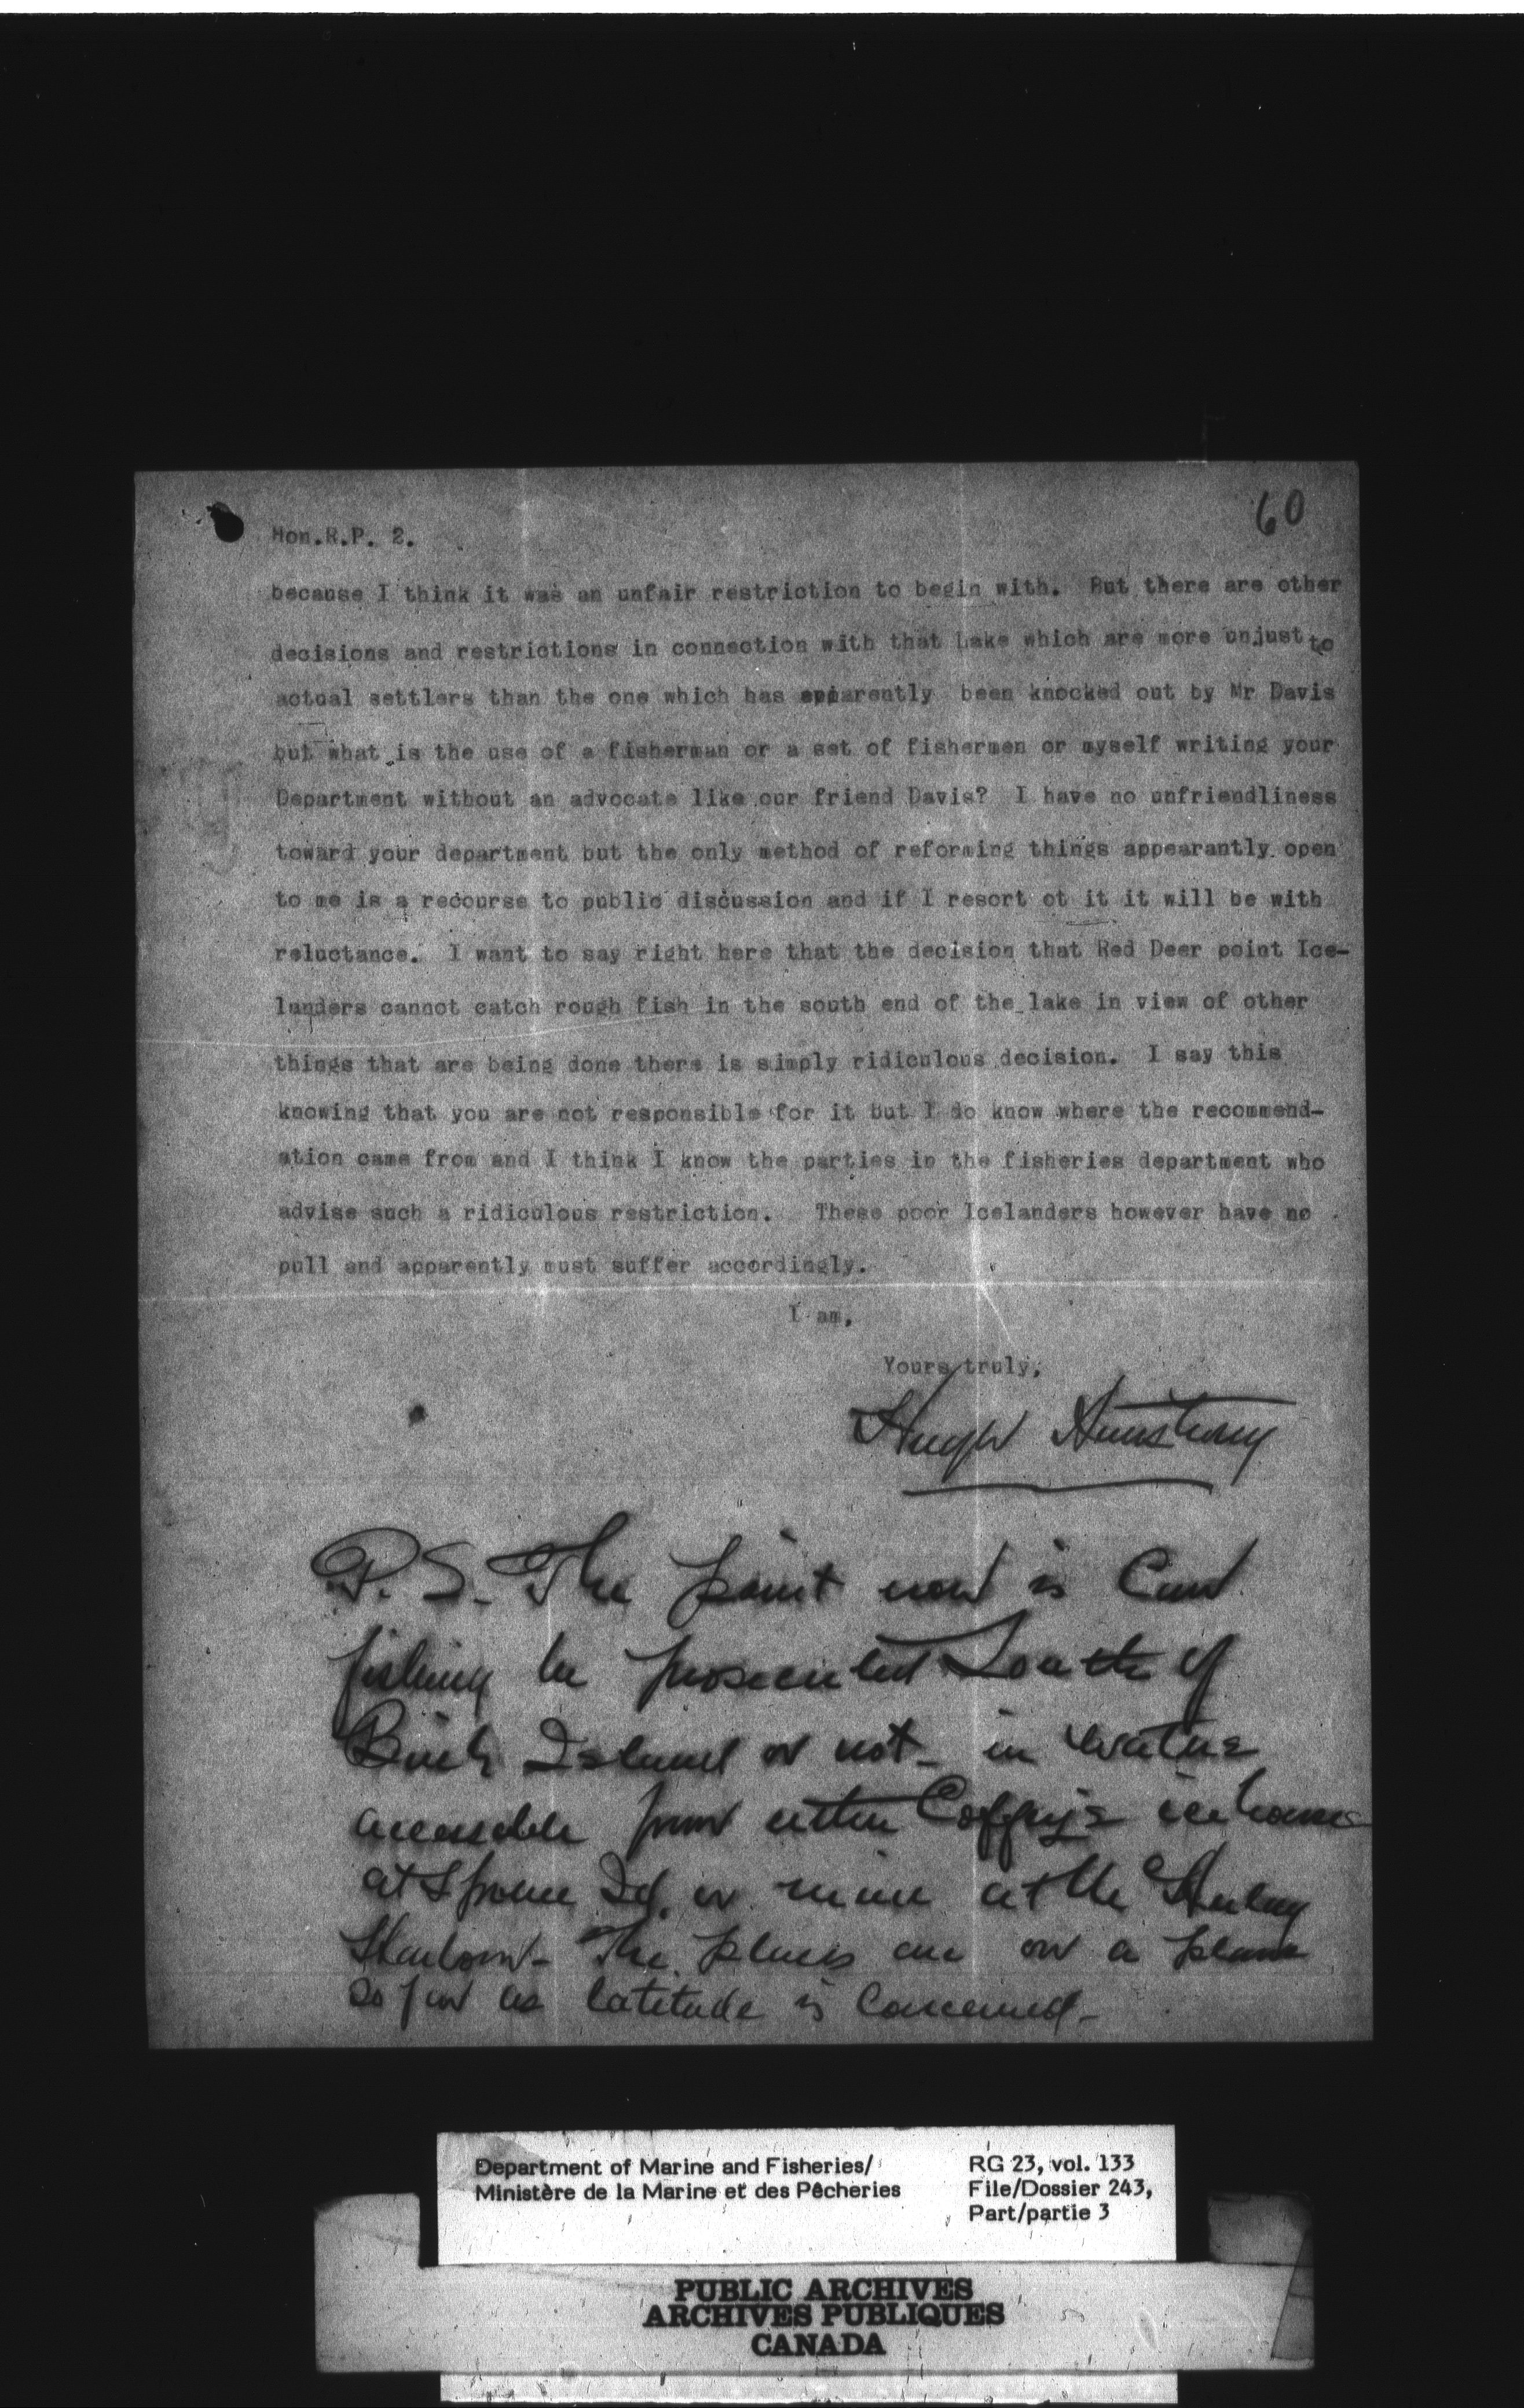 60
Hon.R.P. 2.
because I think it was an unfair restriction to begin with. But there are other
decisions and restrictions in connection with that Lake which are more unjust to
actual settlers than the one which has apparently been knocked out by Mr Davis
but what is the use of a fisherman or a set of fishermen or myself writing your
Department without an advocate like our friend Davis? I have no unfriendliness
toward your department but the only method of reforming things appearantly open
to me is a recourse to public discussion and if I resort ot it it will be with
reluctance. I want to say right here that the decision that Red Deer point Ice-
landers cannot catch rough fish in the south end of the lake in view of other
things that are being done there is simply ridiculous decision. I say this
knowing that you are not responsible for it but I do know where the recommend-
ation came from and I think I know the parties in the fisheries department who
advise such a ridiculous restriction. These poor Icelanders however have no
pull and apparently must suffer accordingly.
I am,
Yours truly,
Hugh Armstrong
P.S. The point now is Can
fishing be prosecuted South of
Birch Island or not - in waters
accessible from either Coffey's ice house
at Spruce Id. or mine at the
Harbour - The places are on a
so far as latitude is Concerned -
Department of Marine and Fisheries/
Ministère de la Marine et des Pêcheries
RG 23, vol. 133
File/Dossier 243,
Part/partie 3
PUBLIC ARCHIVES
ARCHIVES PUBLIQUES
CANADA